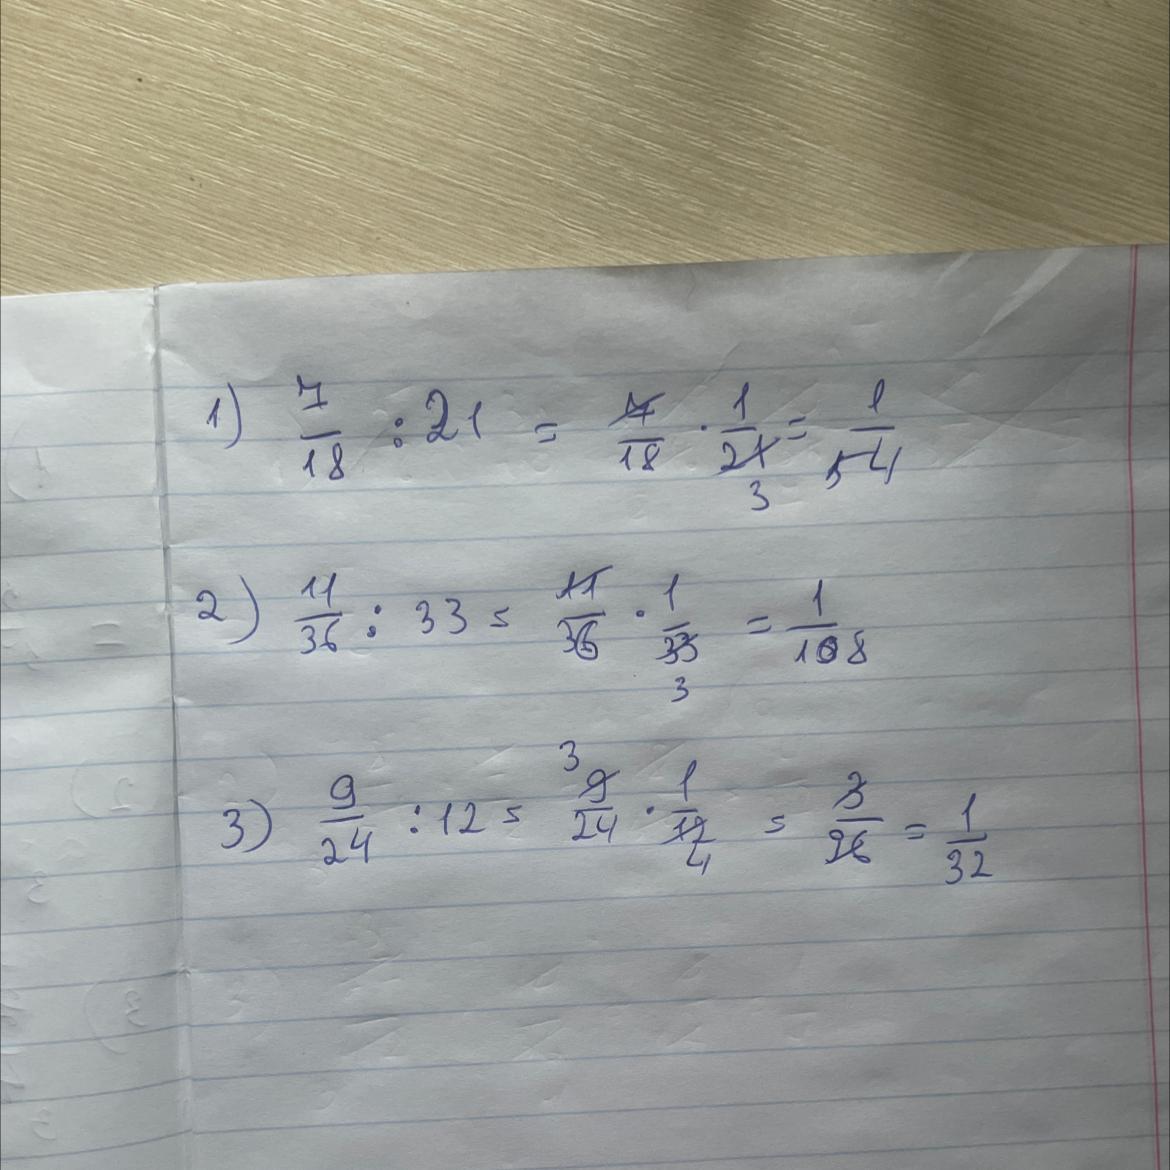 1) 7/18 : 21 = 7/18 · 1/21 = 1/54
3
2) 11/36 : 33 = 11/36 · 1/33 = 1/108
3
3
3) 9/24 : 12 = 9/24 · 1/12 = 3/96 = 1/32
4